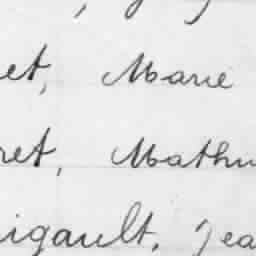 et, Marie
ret, Mathu
igault, Jea